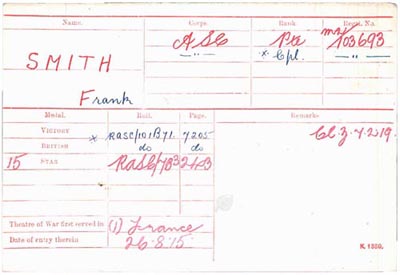 Name. Corps. Rank. Regtl. No.
SMITH ASC Pte M2/103693
" x Cpl. "
Frank
Medal. Roll. Page. Remarks.
VICTORY x RASC/101B71. 7205 Cl. Z. 4.2.19.
BRITISH do do
15 STAR RASC/7B3
Theatre of War first served in (1) France
Date of entry therein 26.8.15.
K. 1380.